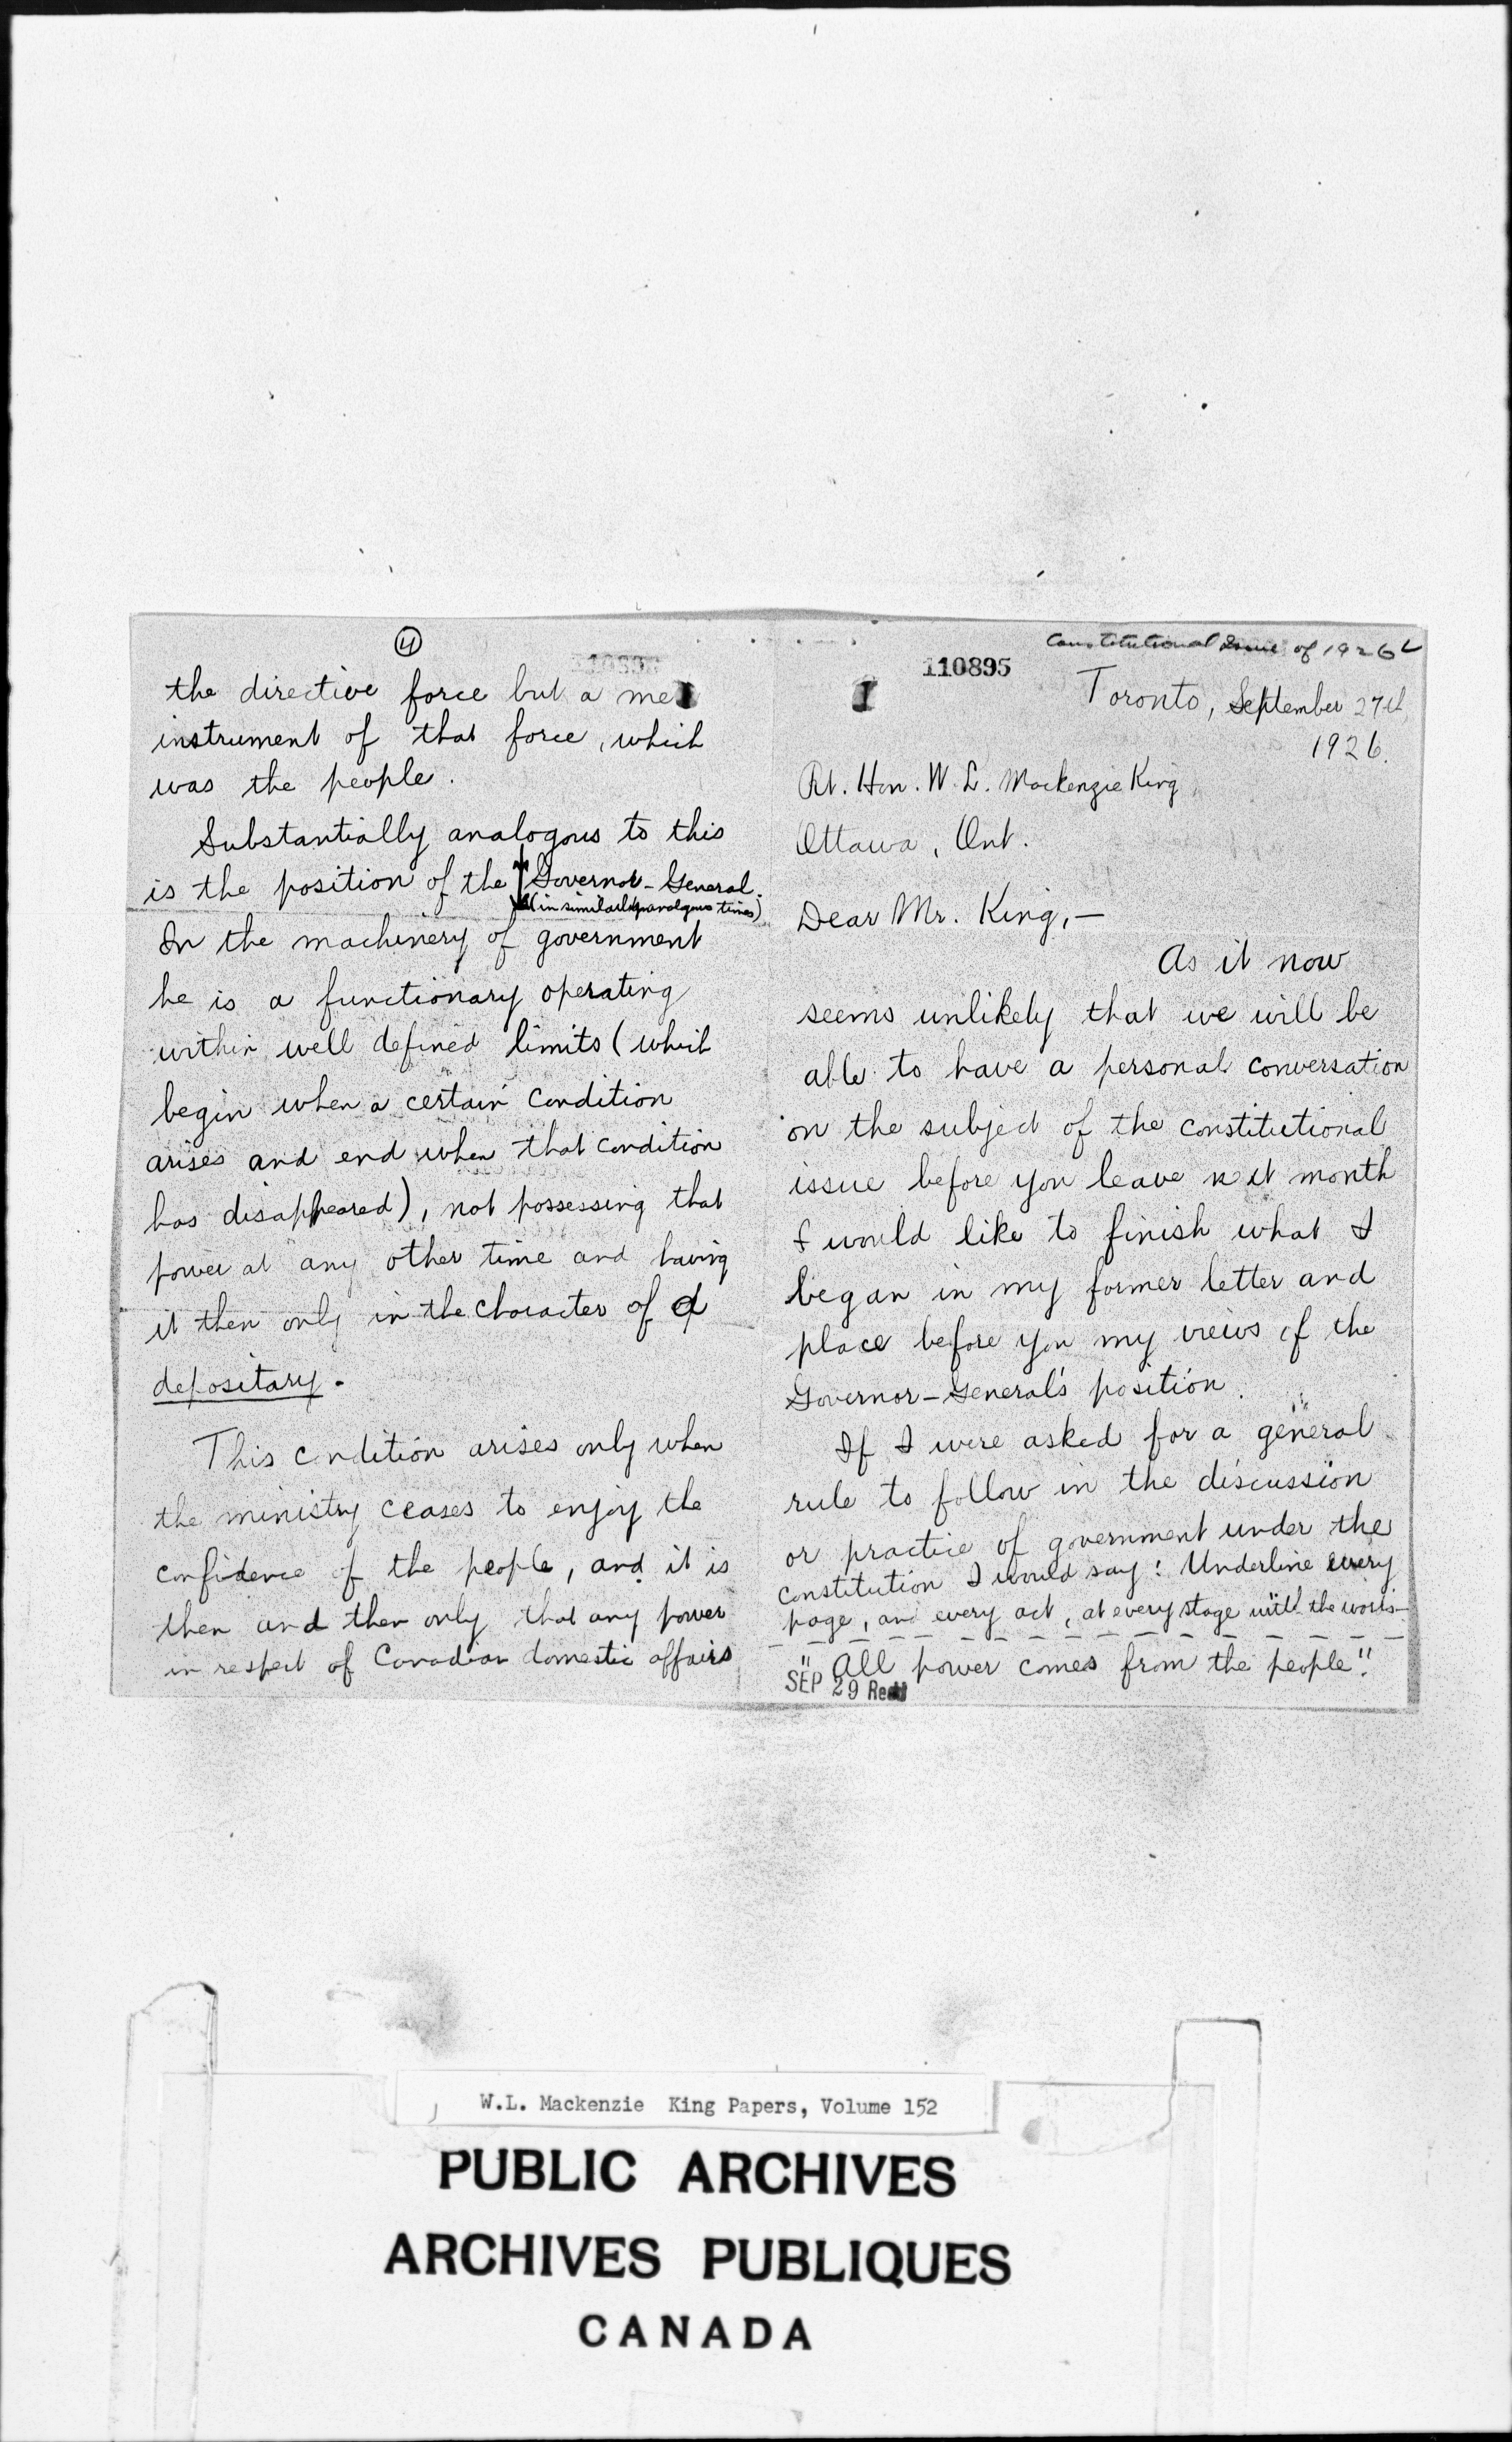 ④
the directive force but a mere
instrument of that force, which
was the people.
Substantially analogous to this
is the position of the Governor-General.
(in similar analogous times)
In the machinery of government
he is a functionary operating
within well defined limits (which
begin when a certain condition
arises and end when that condition
has disappeared), not possessing that
power at any other time and having
it then only in the character of a
depositary.
This condition arises only when
the ministry ceases to enjoy the
confidence of the people, and it is
then and then only that any power
in respect of Canadian domestic affairs
Constitutional Issue of 1926
110895
I
Toronto, September 27th,
1926.
Rt. Hon. W. L. Mackenzie King,
Ottawa, Ont.
Dear Mr. King,—
As it now
seems unlikely that we will be
able to have a personal conversation
on the subject of the constitutional
issue before you leave next month
I would like to finish what I
began in my former letter and
place before you my views of the
Governor-General's position.
If I were asked for a general
rule to follow in the discussion
or practice of government under the
constitution I would say: Underline every
page, and every act, at every stage with the words—
"All power comes from the people".
SEP 29 Rec'd
W.L. Mackenzie King Papers, Volume 152
PUBLIC ARCHIVES
ARCHIVES PUBLIQUES
CANADA